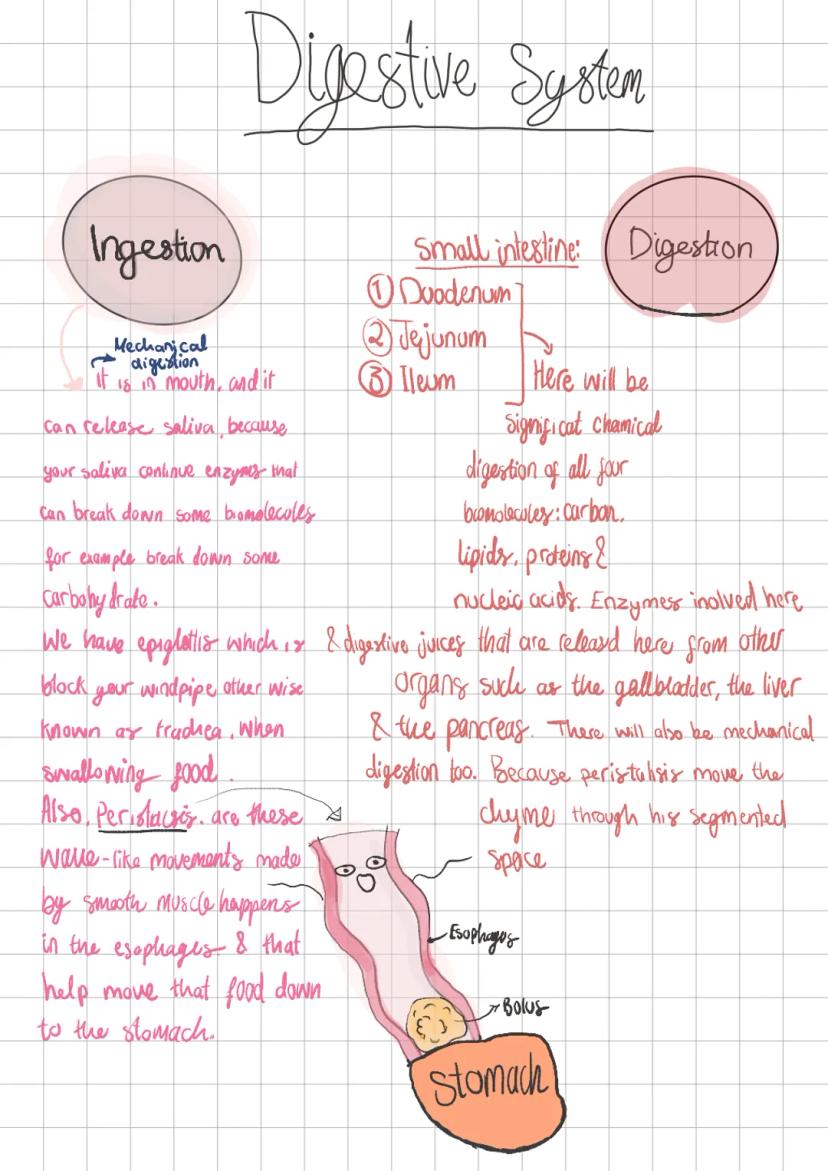 Digestive System
Ingestion
Mechanical
digestion
It is in mouth, and it
can release saliva, because
your saliva continue enzymes that
can break down some biomolecules
for example break down some
carbohydrate.
We have epiglottis which is
block your windpipe other wise
known as trachea, when
swallowing food.
Also, Peristacsis. are these
wave-like movements made
by smooth muscle happens
in the esophages & that
help move that food down
to the stomach.
Digestion
Small intestine:
① Duodenum
② Jejunum
③ Ileum
Here will be
significat chamical
digestion of all four
biomolecules: carbon,
lipids, proteins &
nucleic acids. Enzymes inolved here
& digestive juices that are releasd here from other
organs such as the gallbladder, the liver
& the pancreas. There will also be mechanical
digestion too. Because peristalsis move the
chyme through his segmented
space
Esophagos
Bolus
Stomach